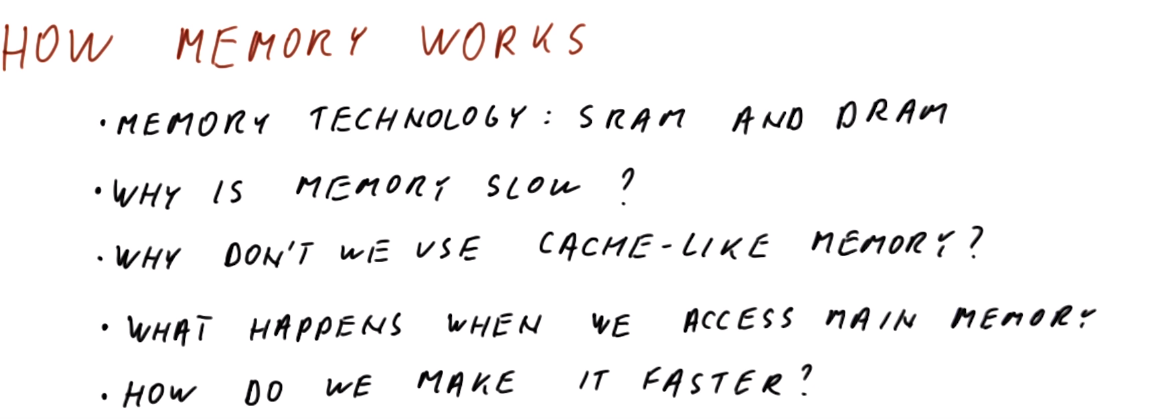 HOW MEMORY WORKS
• MEMORY TECHNOLOGY: SRAM AND DRAM
• WHY IS MEMORY SLOW?
• WHY DON'T WE USE CACHE-LIKE MEMORY?
• WHAT HAPPENS WHEN WE ACCESS MAIN MEMORY
• HOW DO WE MAKE IT FASTER?